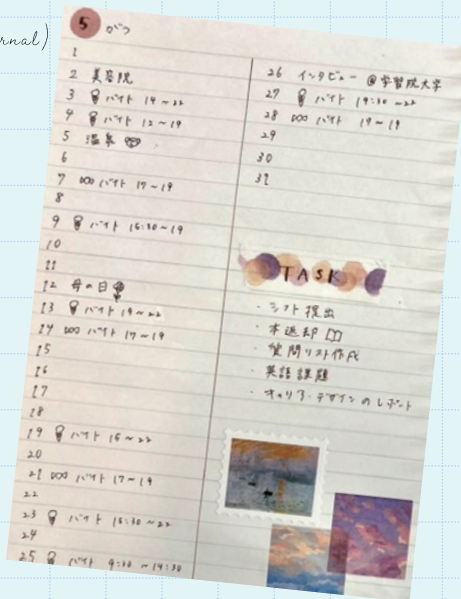 rnal)
5 がつ
1
2 美容院
3 バイト 14~22
4 バイト 12~19
5 温泉
6
7 バイト 17~19
8
9 バイト 16:30~19
10
11
12 母の日
13 バイト 19~22
14 バイト 17~19
15
16
17
18
19 バイト 15~22
20
21 バイト 17~19
22
23 バイト 16:30~22
24
25 バイト 9:30~14:30
26 インタビュー @学習院大学
27 バイト 19:30~22
28 バイト 17~19
29
30
31
TASK
・シフト提出
・本返却
・質問リスト作成
・英語課題
・キャリア・デザインのレポート